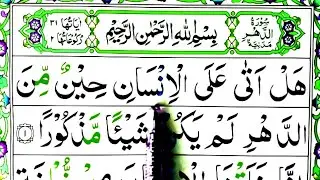 اٰیَاتُهَا ٣١
سُوْرَةُ الدَّهْرِ مَدَنِیَّةٌ
بِسْمِ اللّٰهِ الرَّحْمٰنِ الرَّحِیْمِ
رُکُوْعَاتُهَا ٢
هَلْ اَتٰی عَلَی الْاِنْسَانِ حِیْنٌ مِّنَ
الدَّهْرِ لَمْ یَکُنْ شَیْـًٔا مَّذْکُوْرًا ١